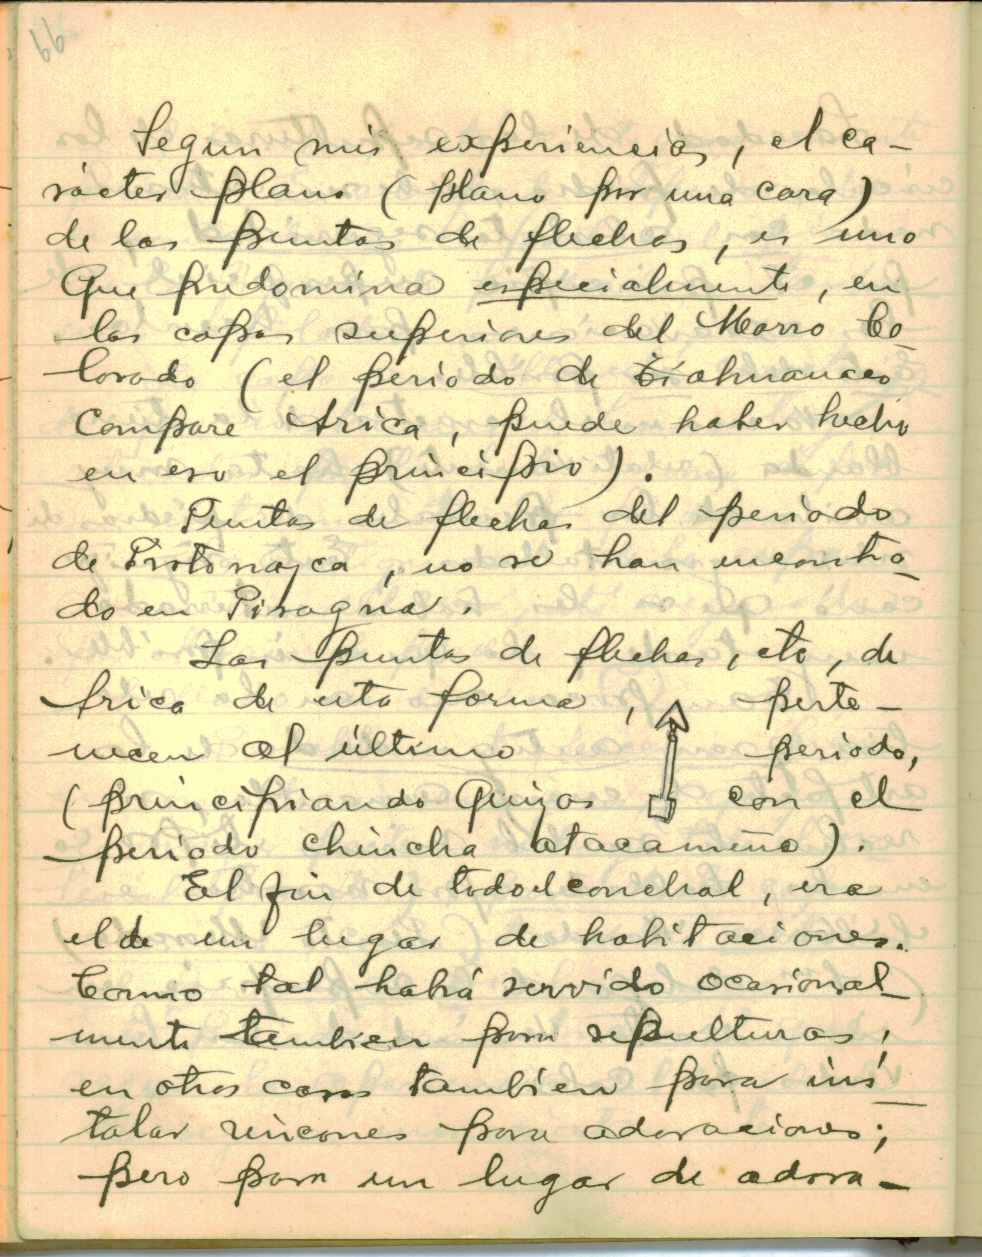 66
Segun mis experiencias, el ca-
rácter plano (plano por una cara)
de las puntas de flechas, es uno
que predomina especialmente, en
las capas superiores del Morro Co-
lorado (el periodo de Tiahuanaco
compare Arica, puede haber hecho
en eso el principio).
Puntas de flechas del periodo
de Protonazca, no se han encontra-
do en Pisagua.
Las puntas de flechas, etc, de
Arica de esta forma, perte-
necen al último periodo,
(principiando Quizas con el
periodo chincha atacameño).
El fin de todo el conchal, era
el de un lugar de habitaciones.
Como tal habrá servido ocasional-
mente tambien para sepulturas,
en otros casos tambien para ins-
talar rincones para adoraciones;
pero para un lugar de adora-